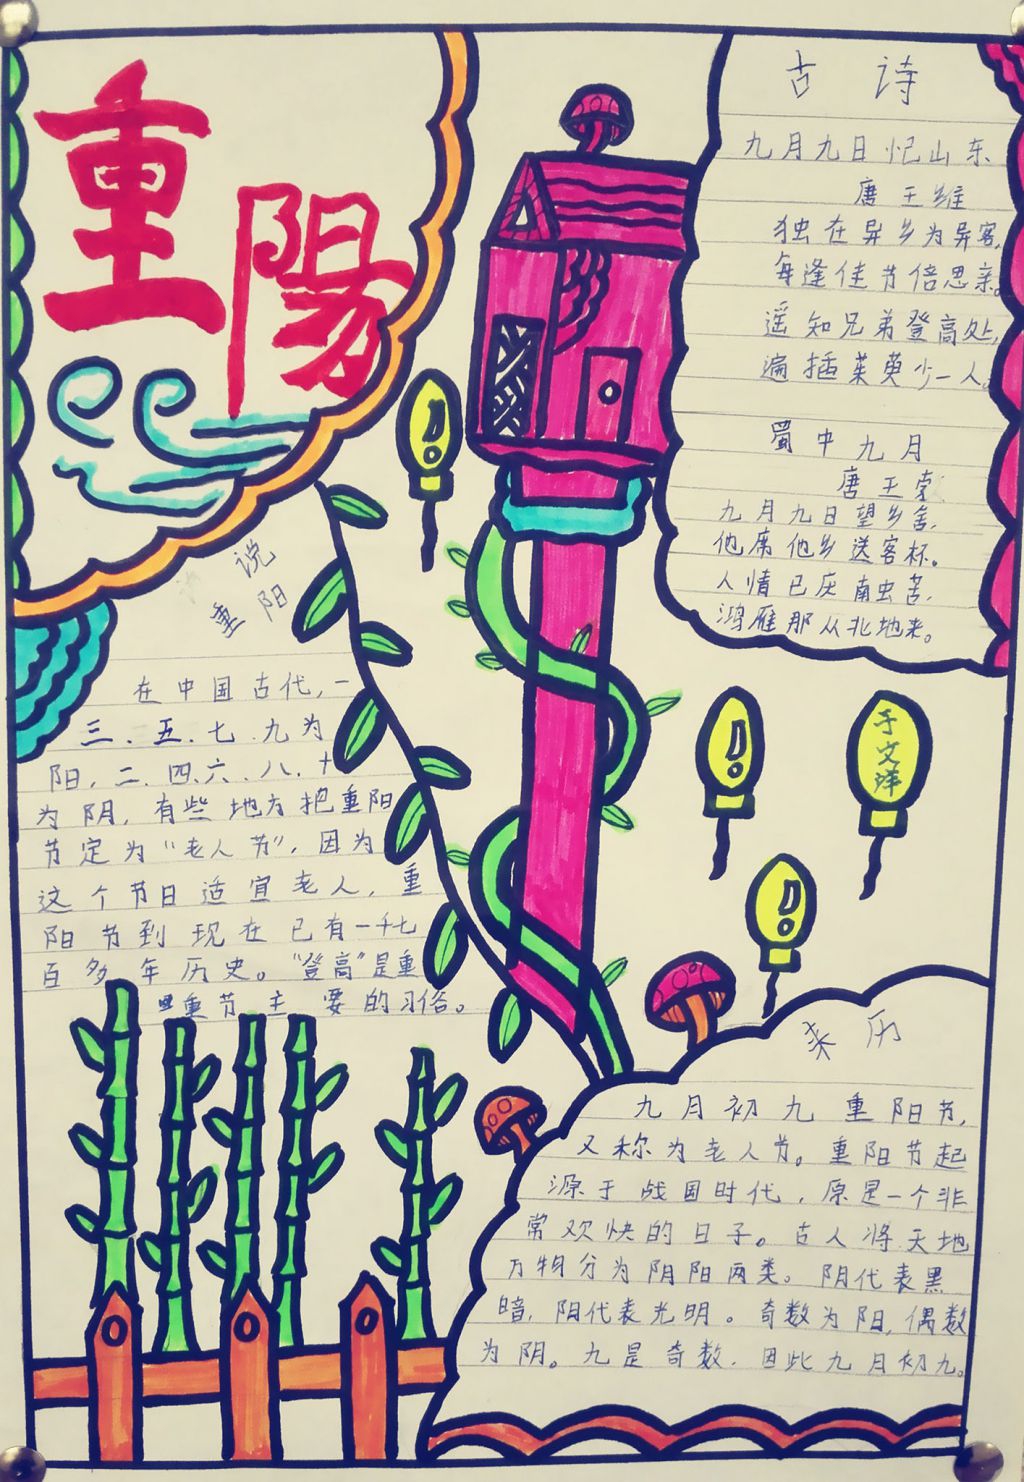 重陽
古诗
九月九日忆山东
唐王维
独在异乡为异客,
每逢佳节倍思亲。
遥知兄弟登高处,
遍插茱萸少一人。
蜀中九月
唐王勃
九月九日望乡台,
他席他乡送客杯。
人情已厌南中苦,
鸿雁那从北地来。
说重阳
在中国古代,一
三、五、七、九为
阳,二、四、六、八、十
为阴,有些地方把重阳
节定为“老人节”,因为
这个节日适宜老人,重
阳节到现在已有一千七
百多年历史。“登高”是重
重节主要的习俗。
于文洋
来历
九月初九重阳节,
又称为老人节。重阳节起
源于战国时代,原是一个非
常欢快的日子。古人将天地
万物分为阴阳两类。阴代表黑
暗,阳代表光明。奇数为阳,偶数
为阴。九是奇数,因此九月初九。